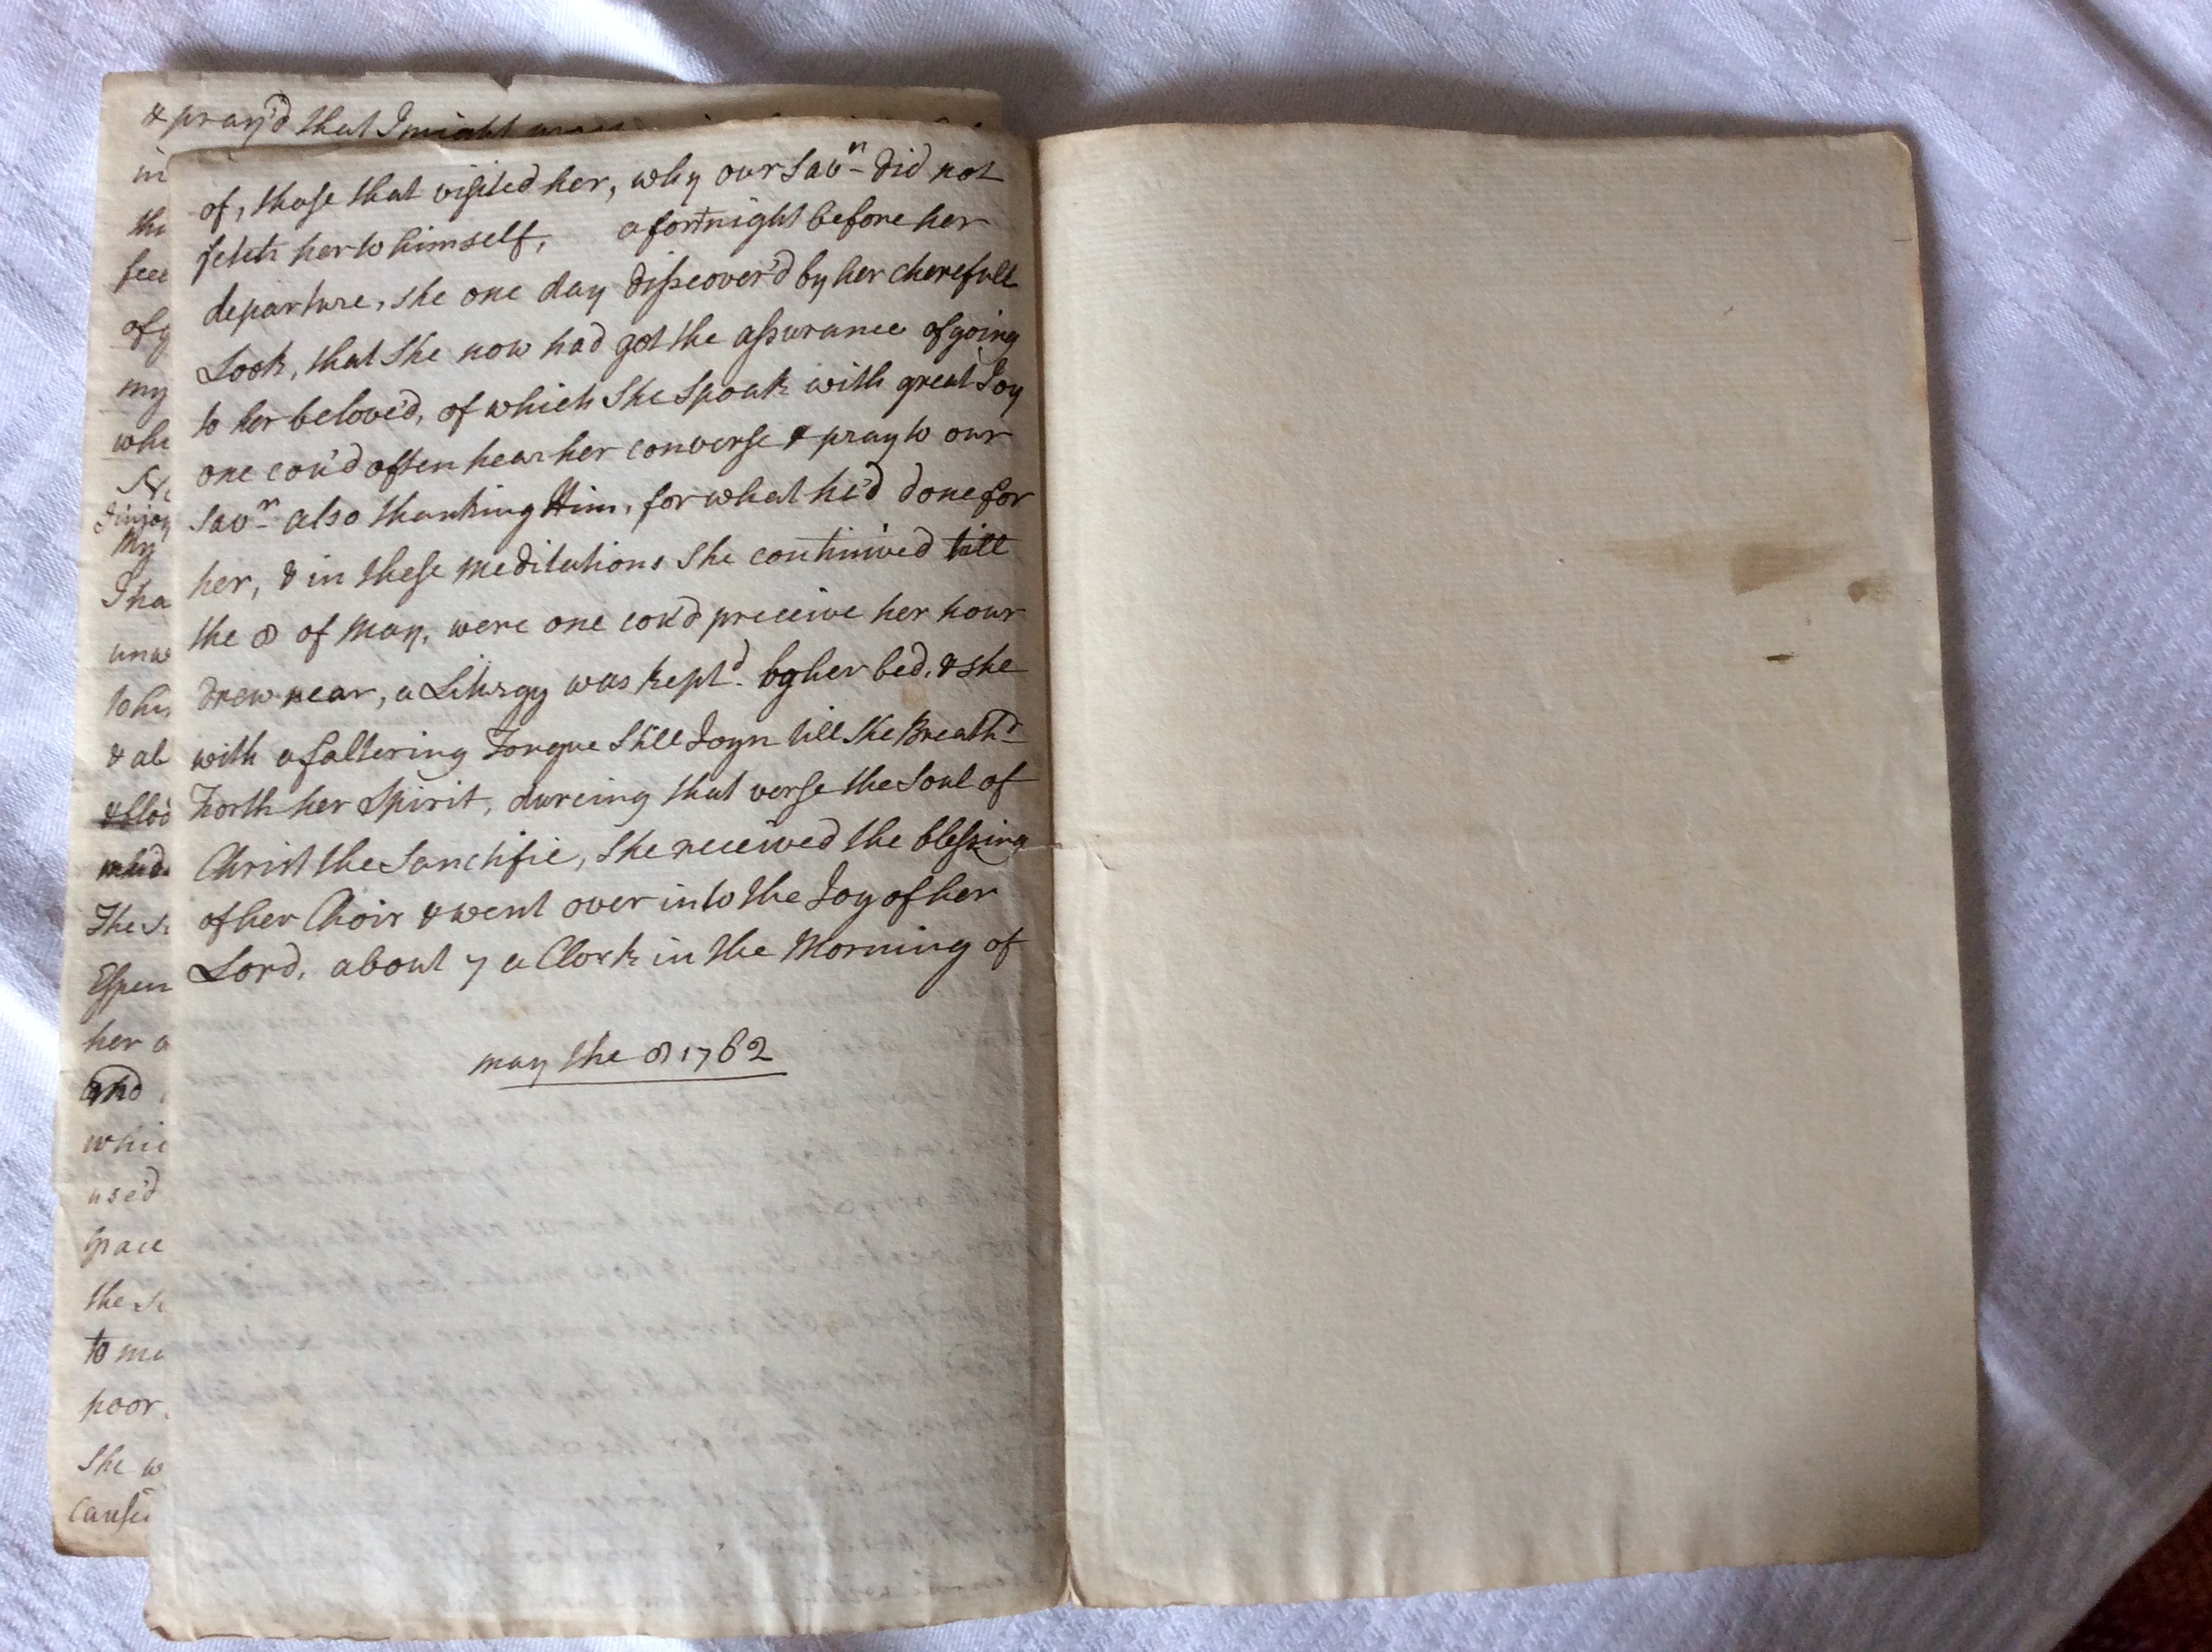 & pray'd that I might
in
the
feel
of
my
whe
My
I ha
unw
to his
& ab
The
her a
and
whic
use'd
the
to me
poor
She w
cause
of, those that visited her, why our Savr did not
fetch her to himself, a fortnight before her
departure, she one day discover'd by her cherefull
Look, that She now had got the assurance of going
to her belove'd, of which She Spoak with great Joy
one cou'd often hear her converse & pray to our
Savr also thanking Him, for what he'd done for
her, & in these Meditations She continiued till
the 8 of May, were one cou'd preceive her hour
drew near, a Liturgy was kept'd by her bed, & she
with a faltering Tongue Still Joyn till She Breath'd
Forth her Spirit, dureing that verse the Soul of
Christ the Sanctifie, She received the blessing
of her Choir & went over into the Joy of her
Lord, about 7 a Clock in the Morning of
may the 8 1762